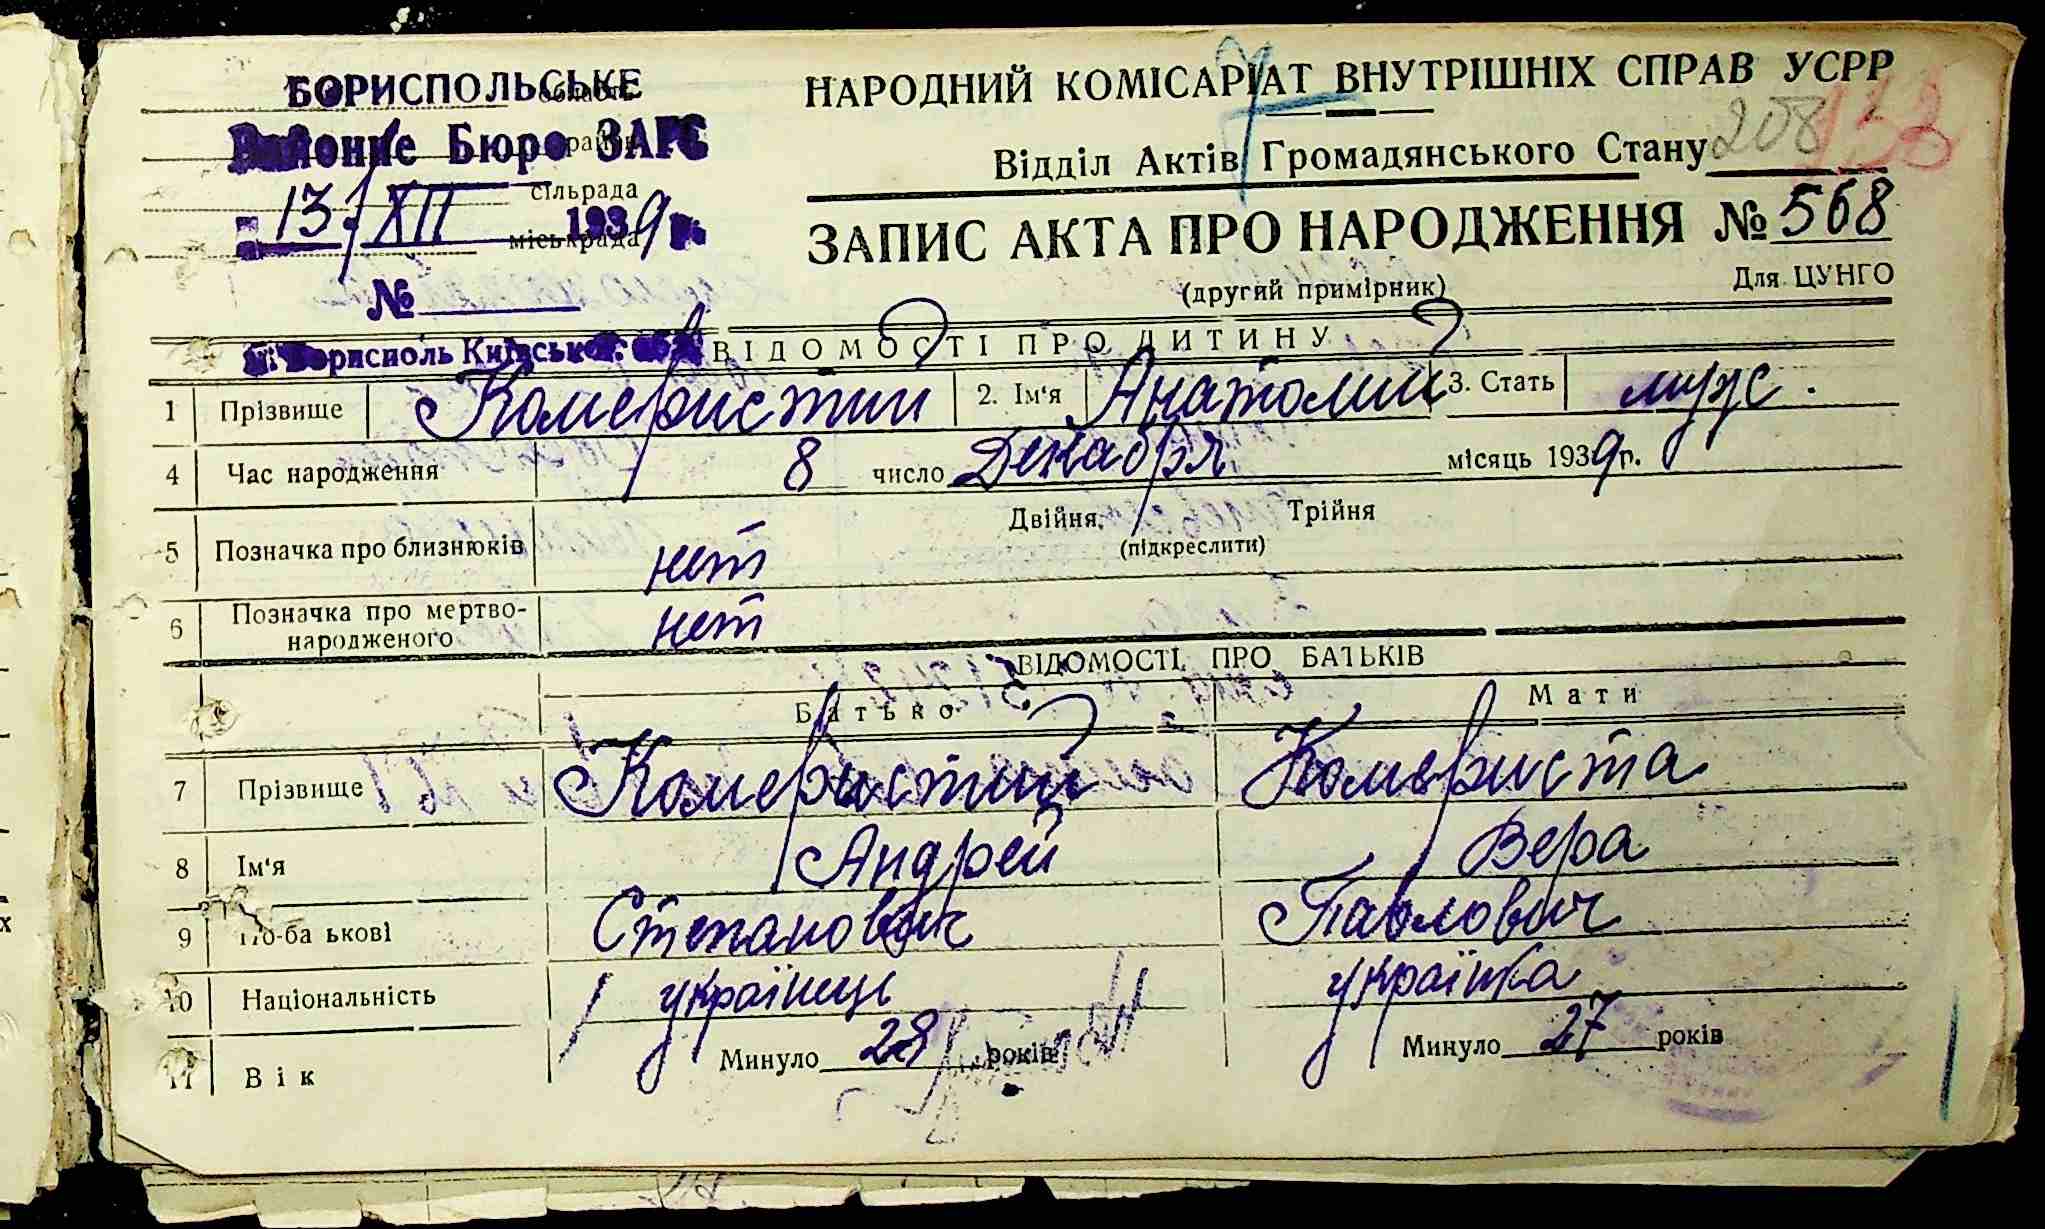 БОРИСПОЛЬСЬКЕ
Районне Бюро ЗАГС
сільрада
13/XII 1939 р.
міськрада
№
м. Бориспіль Київськ
НАРОДНИЙ КОМІСАРІАТ ВНУТРІШНІХ СПРАВ УСРР
Відділ Актів Громадянського Стану 208 133
ЗАПИС АКТА ПРО НАРОДЖЕННЯ № 568
(другий примірник) Для ЦУНГО
ВІДОМОСТІ ПРО ДИТИНУ
1 Прізвище Комеристий 2. Ім'я Анатолий 3. Стать муж.
4 Час народження 8 число Декабря місяць 1939 р.
Двійня, Трійня
5 Позначка про близнюків нет (підкреслити)
6 Позначка про мертво-
народженого нет
ВІДОМОСТІ ПРО БАТЬКІВ
Батько Мати
7 Прізвище Комеристий Комериста
8 Ім'я Андрей Вера
9 По-ба ькові Степанович Павлович
10 Національність українець українка
11 Вік Минуло 28 років Минуло 27 років